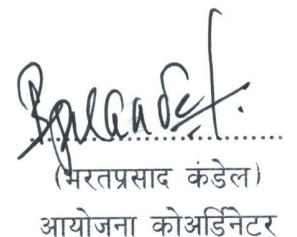 (भरतप्रसाद कंडेल)
आयोजना कोअर्डिनेटर